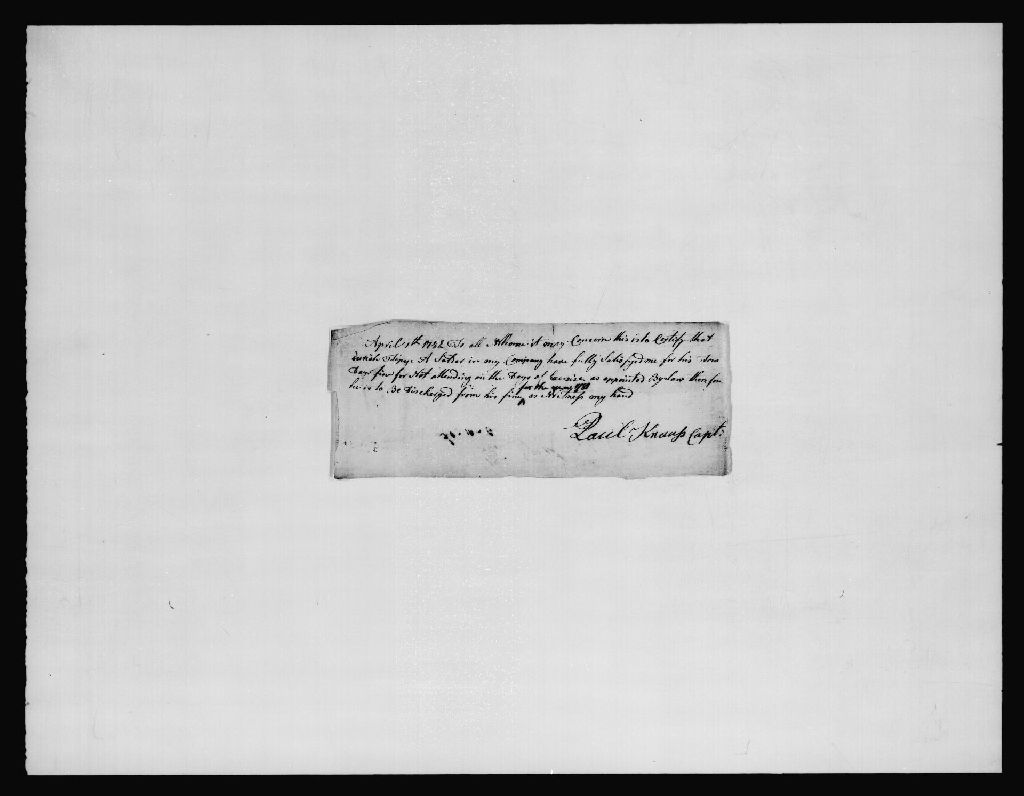 April 1th 1782 To all Whome it may Concern this is to Certify that
in my Company have fully Satisfyed me for his
Days fine for Not attending on the Days of Exercise as appointed By law therefore
for the year
he is to Be Discharged from his fine as Witness my hand
Paul Knauss Capt: